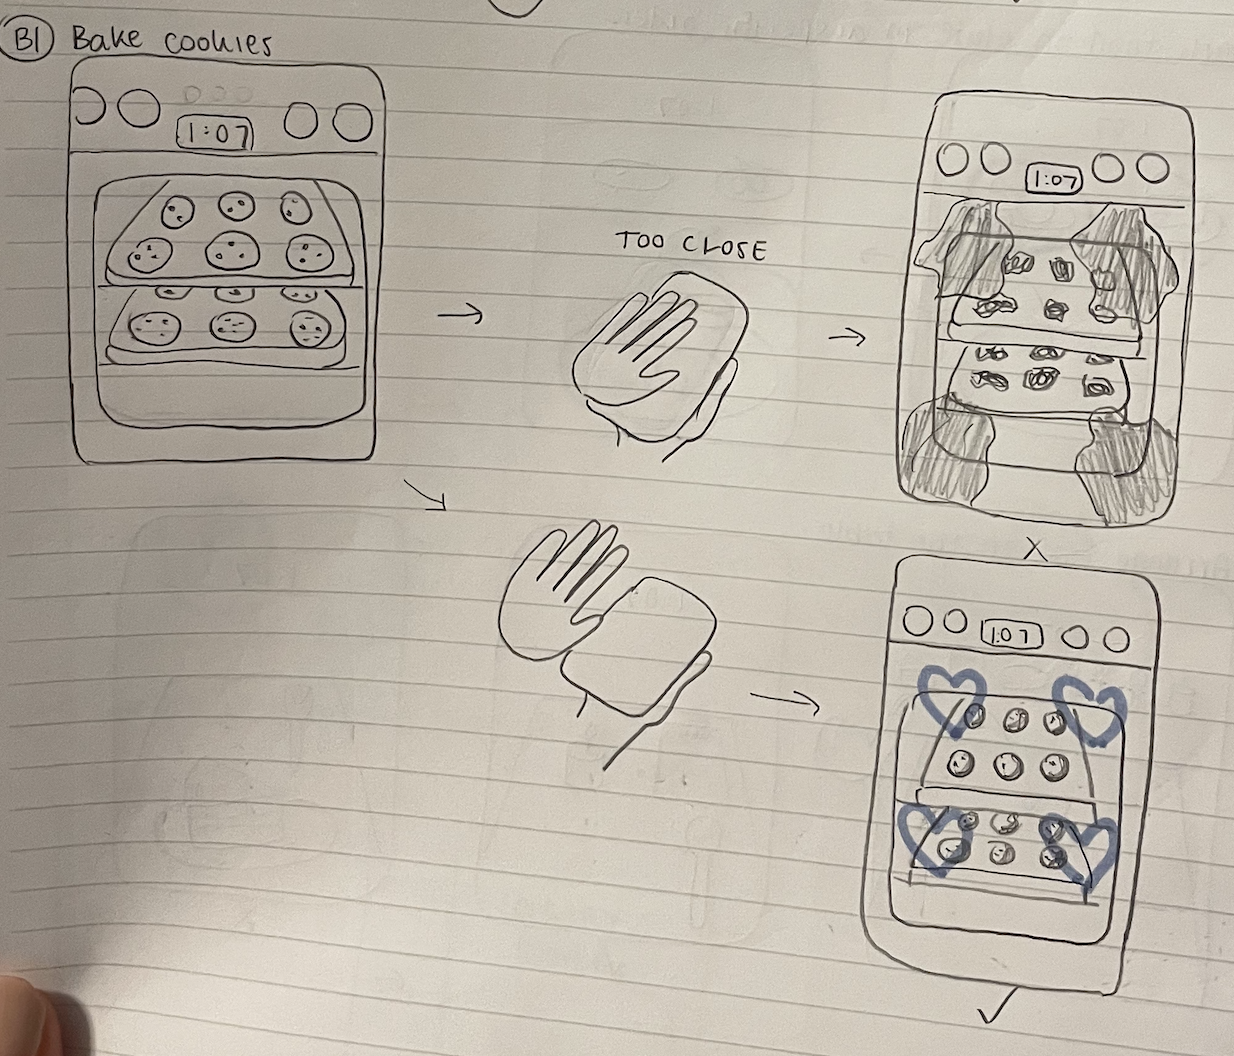 B1 Bake cookies
1:07
TOO CLOSE
1:07
X
1:07